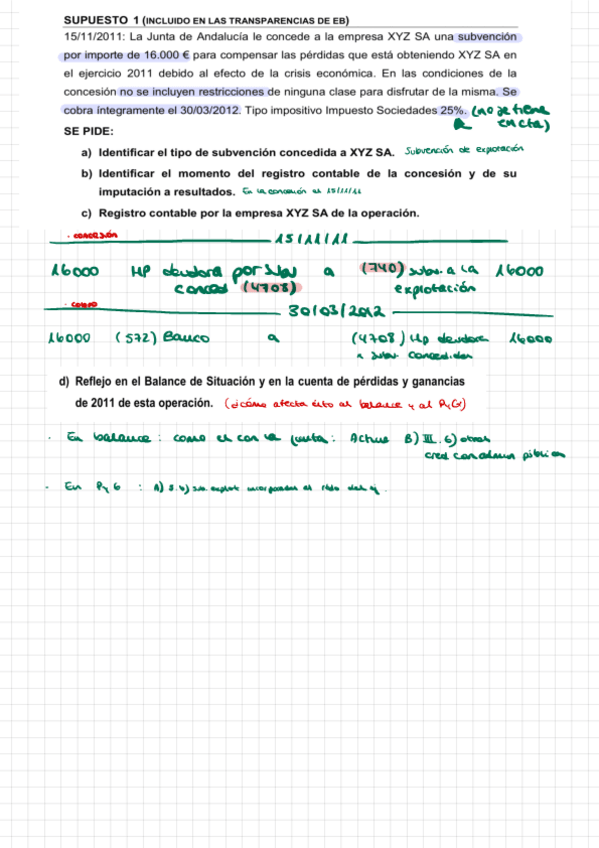 SUPUESTO 1 (INCLUIDO EN LAS TRANSPARENCIAS DE EB)
15/11/2011: La Junta de Andalucía le concede a la empresa XYZ SA una subvención
por importe de 16.000 € para compensar las pérdidas que está obteniendo XYZ SA en
el ejercicio 2011 debido al efecto de la crisis económica. En las condiciones de la
concesión no se incluyen restricciones de ninguna clase para disfrutar de la misma. Se
cobra íntegramente el 30/03/2012. Tipo impositivo Impuesto Sociedades 25%. (no se tiene
en cta)
SE PIDE:
a) Identificar el tipo de subvención concedida a XYZ SA. Subvención de explotación
b) Identificar el momento del registro contable de la concesión y de su
imputación a resultados. En la concesión el 15/11/11
c) Registro contable por la empresa XYZ SA de la operación.
· concesión
15/11/11
16000 HP deudora por subv a (740) subv. a la 16000
conced (4708) explotación
· cobro
30/03/2012
16000 (572) Banco a (4708) Hp deudora 16000
x subv concedidas
d) Reflejo en el Balance de Situación y en la cuenta de pérdidas y ganancias
de 2011 de esta operación. (¿cómo afecta esto al balance y al PyG?)
· En balance: como es con la junta: Activo B) III. 6) otros
cred con admin públicas
· En PyG : A) 5. b) sub. explot incorporadas al rtdo del ej.